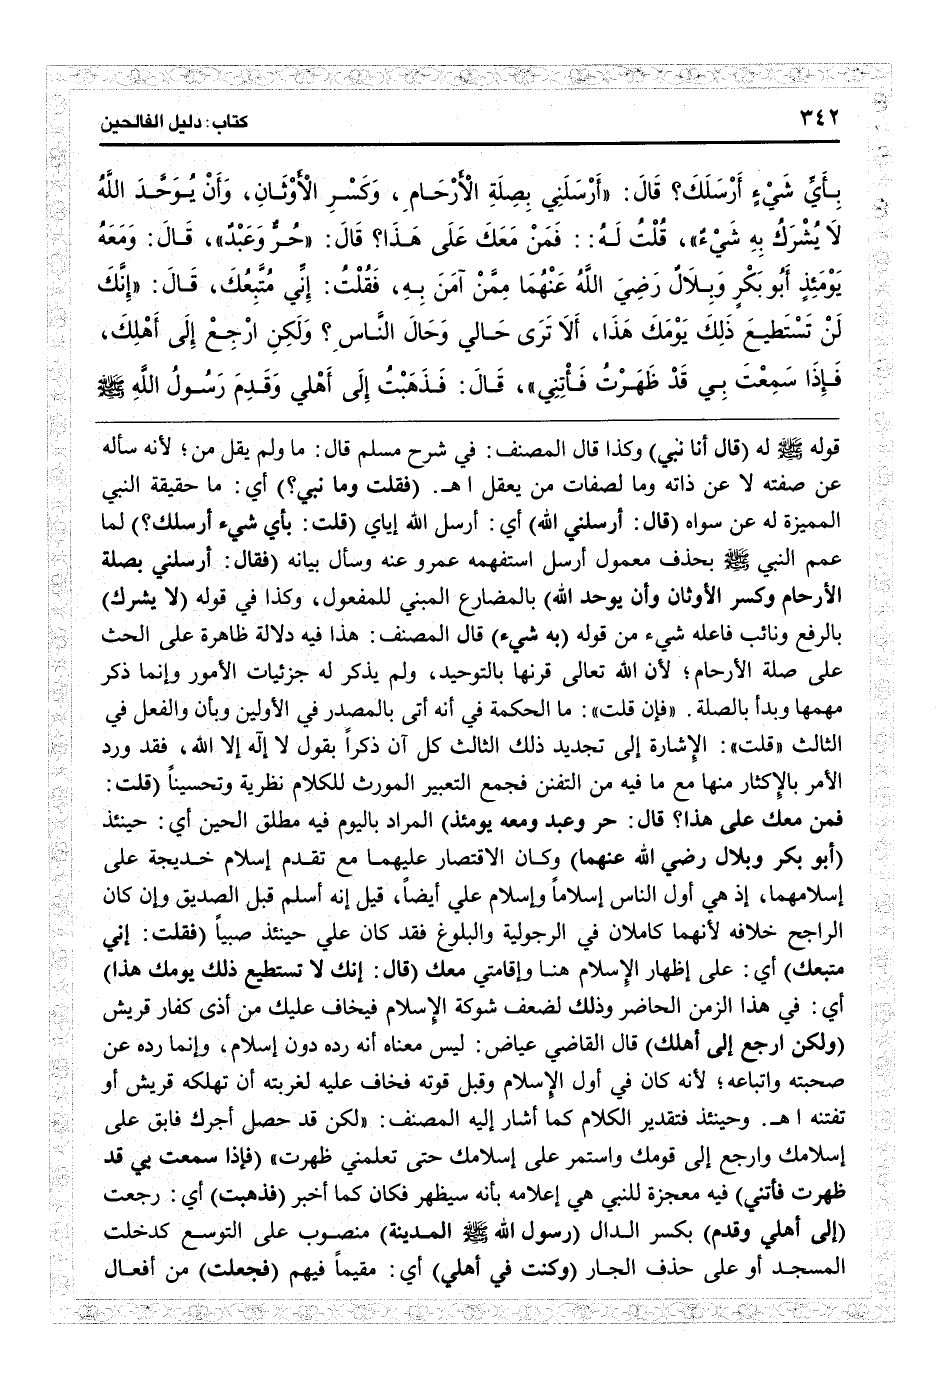 ٣٤٢
كتاب: دليل الفالحين
بِأَيِّ شَيْءٍ أَرْسَلَكَ؟ قَالَ: «أَرْسَلَنِي بِصِلَةِ الْأَرْحَامِ، وَكَسْرِ الْأَوْثَانِ، وَأَنْ يُوَحَّدَ اللَّهُ
لَا يُشْرَكُ بِهِ شَيْءٌ»، قُلْتُ لَهُ: : فَمَنْ مَعَكَ عَلَى هَذَا؟ قَالَ: «حُرٌّ وَعَبْدٌ»، قَالَ: وَمَعَهُ
يَوْمَئِذٍ أَبُو بَكْرٍ وَبِلَالٌ رَضِيَ اللَّهُ عَنْهُمَا مِمَّنْ آمَنَ بِهِ، فَقُلْتُ: إِنِّي مُتَّبِعُكَ، قَالَ: «إِنَّكَ
لَنْ تَسْتَطِيعَ ذَلِكَ يَوْمَكَ هَذَا، أَلَا تَرَى حَالِي وَحَالَ النَّاسِ؟ وَلَكِنِ ارْجِعْ إِلَى أَهْلِكَ،
فَإِذَا سَمِعْتَ بِي قَدْ ظَهَرْتُ فَأْتِنِي»، قَالَ: فَذَهَبْتُ إِلَى أَهْلِي وَقَدِمَ رَسُولُ اللَّهِ ﷺ
قوله ﷺ له (قال أنا نبي) وكذا قال المصنف: في شرح مسلم قال: ما ولم يقل من؛ لأنه سأله
عن صفته لا عن ذاته وما لصفات من يعقل اهـ. (فقلت وما نبي؟) أي: ما حقيقة النبي
المميزة له عن سواه (قال: أرسلني الله) أي: أرسل الله إياي (قلت: بأي شيء أرسلك؟) لما
عمم النبي ﷺ بحذف معمول أرسل استفهمه عمرو عنه وسأل بيانه (فقال: أرسلني بصلة
الأرحام وكسر الأوثان وأن يوحد الله) بالمضارع المبني للمفعول، وكذا في قوله (لا يشرك)
بالرفع ونائب فاعله شيء من قوله (به شيء) قال المصنف: هذا فيه دلالة ظاهرة على الحث
على صلة الأرحام؛ لأن الله تعالى قرنها بالتوحيد، ولم يذكر له جزئيات الأمور وإنما ذكر
مهمها وبدأ بالصلة. «فإن قلت»: ما الحكمة في أنه أتى بالمصدر في الأولين وبأن والفعل في
الثالث «قلت»: الإشارة إلى تجديد ذلك الثالث كل آن ذكراً بقول لا إلٰه إلا الله، فقد ورد
الأمر بالإكثار منها مع ما فيه من التفنن فجمع التعبير المورث للكلام نظرية وتحسيناً (قلت:
فمن معك على هذا؟ قال: حر وعبد ومعه يومئذ) المراد باليوم فيه مطلق الحين أي: حينئذ
(أبو بكر وبلال رضي الله عنهما) وكان الاقتصار عليهما مع تقدم إسلام خديجة على
إسلامهما، إذ هي أول الناس إسلاماً وإسلام علي أيضاً، قيل إنه أسلم قبل الصديق وإن كان
الراجح خلافه لأنهما كاملان في الرجولية والبلوغ فقد كان علي حينئذ صبياً (فقلت: إني
متبعك) أي: على إظهار الإسلام هنا وإقامتي معك (قال: إنك لا تستطيع ذلك يومك هذا)
أي: في هذا الزمن الحاضر وذلك لضعف شوكة الإسلام فيخاف عليك من أذى كفار قريش
(ولكن ارجع إلى أهلك) قال القاضي عياض: ليس معناه أنه رده دون إسلام، وإنما رده عن
صحبته واتباعه؛ لأنه كان في أول الإسلام وقبل قوته فخاف عليه لغربته أن تهلكه قريش أو
تفتنه اهـ. وحينئذ فتقدير الكلام كما أشار إليه المصنف: «لكن قد حصل أجرك فابق على
إسلامك وارجع إلى قومك واستمر على إسلامك حتى تعلمني ظهرت» (فإذا سمعت بي قد
ظهرت فأتني) فيه معجزة للنبي هي إعلامه بأنه سيظهر فكان كما أخبر (فذهبت) أي: رجعت
(إلى أهلي وقدم) بكسر الدال (رسول الله ﷺ المدينة) منصوب على التوسع كدخلت
المسجد أو على حذف الجار (وكنت في أهلي) أي: مقيماً فيهم (فجعلت) من أفعال